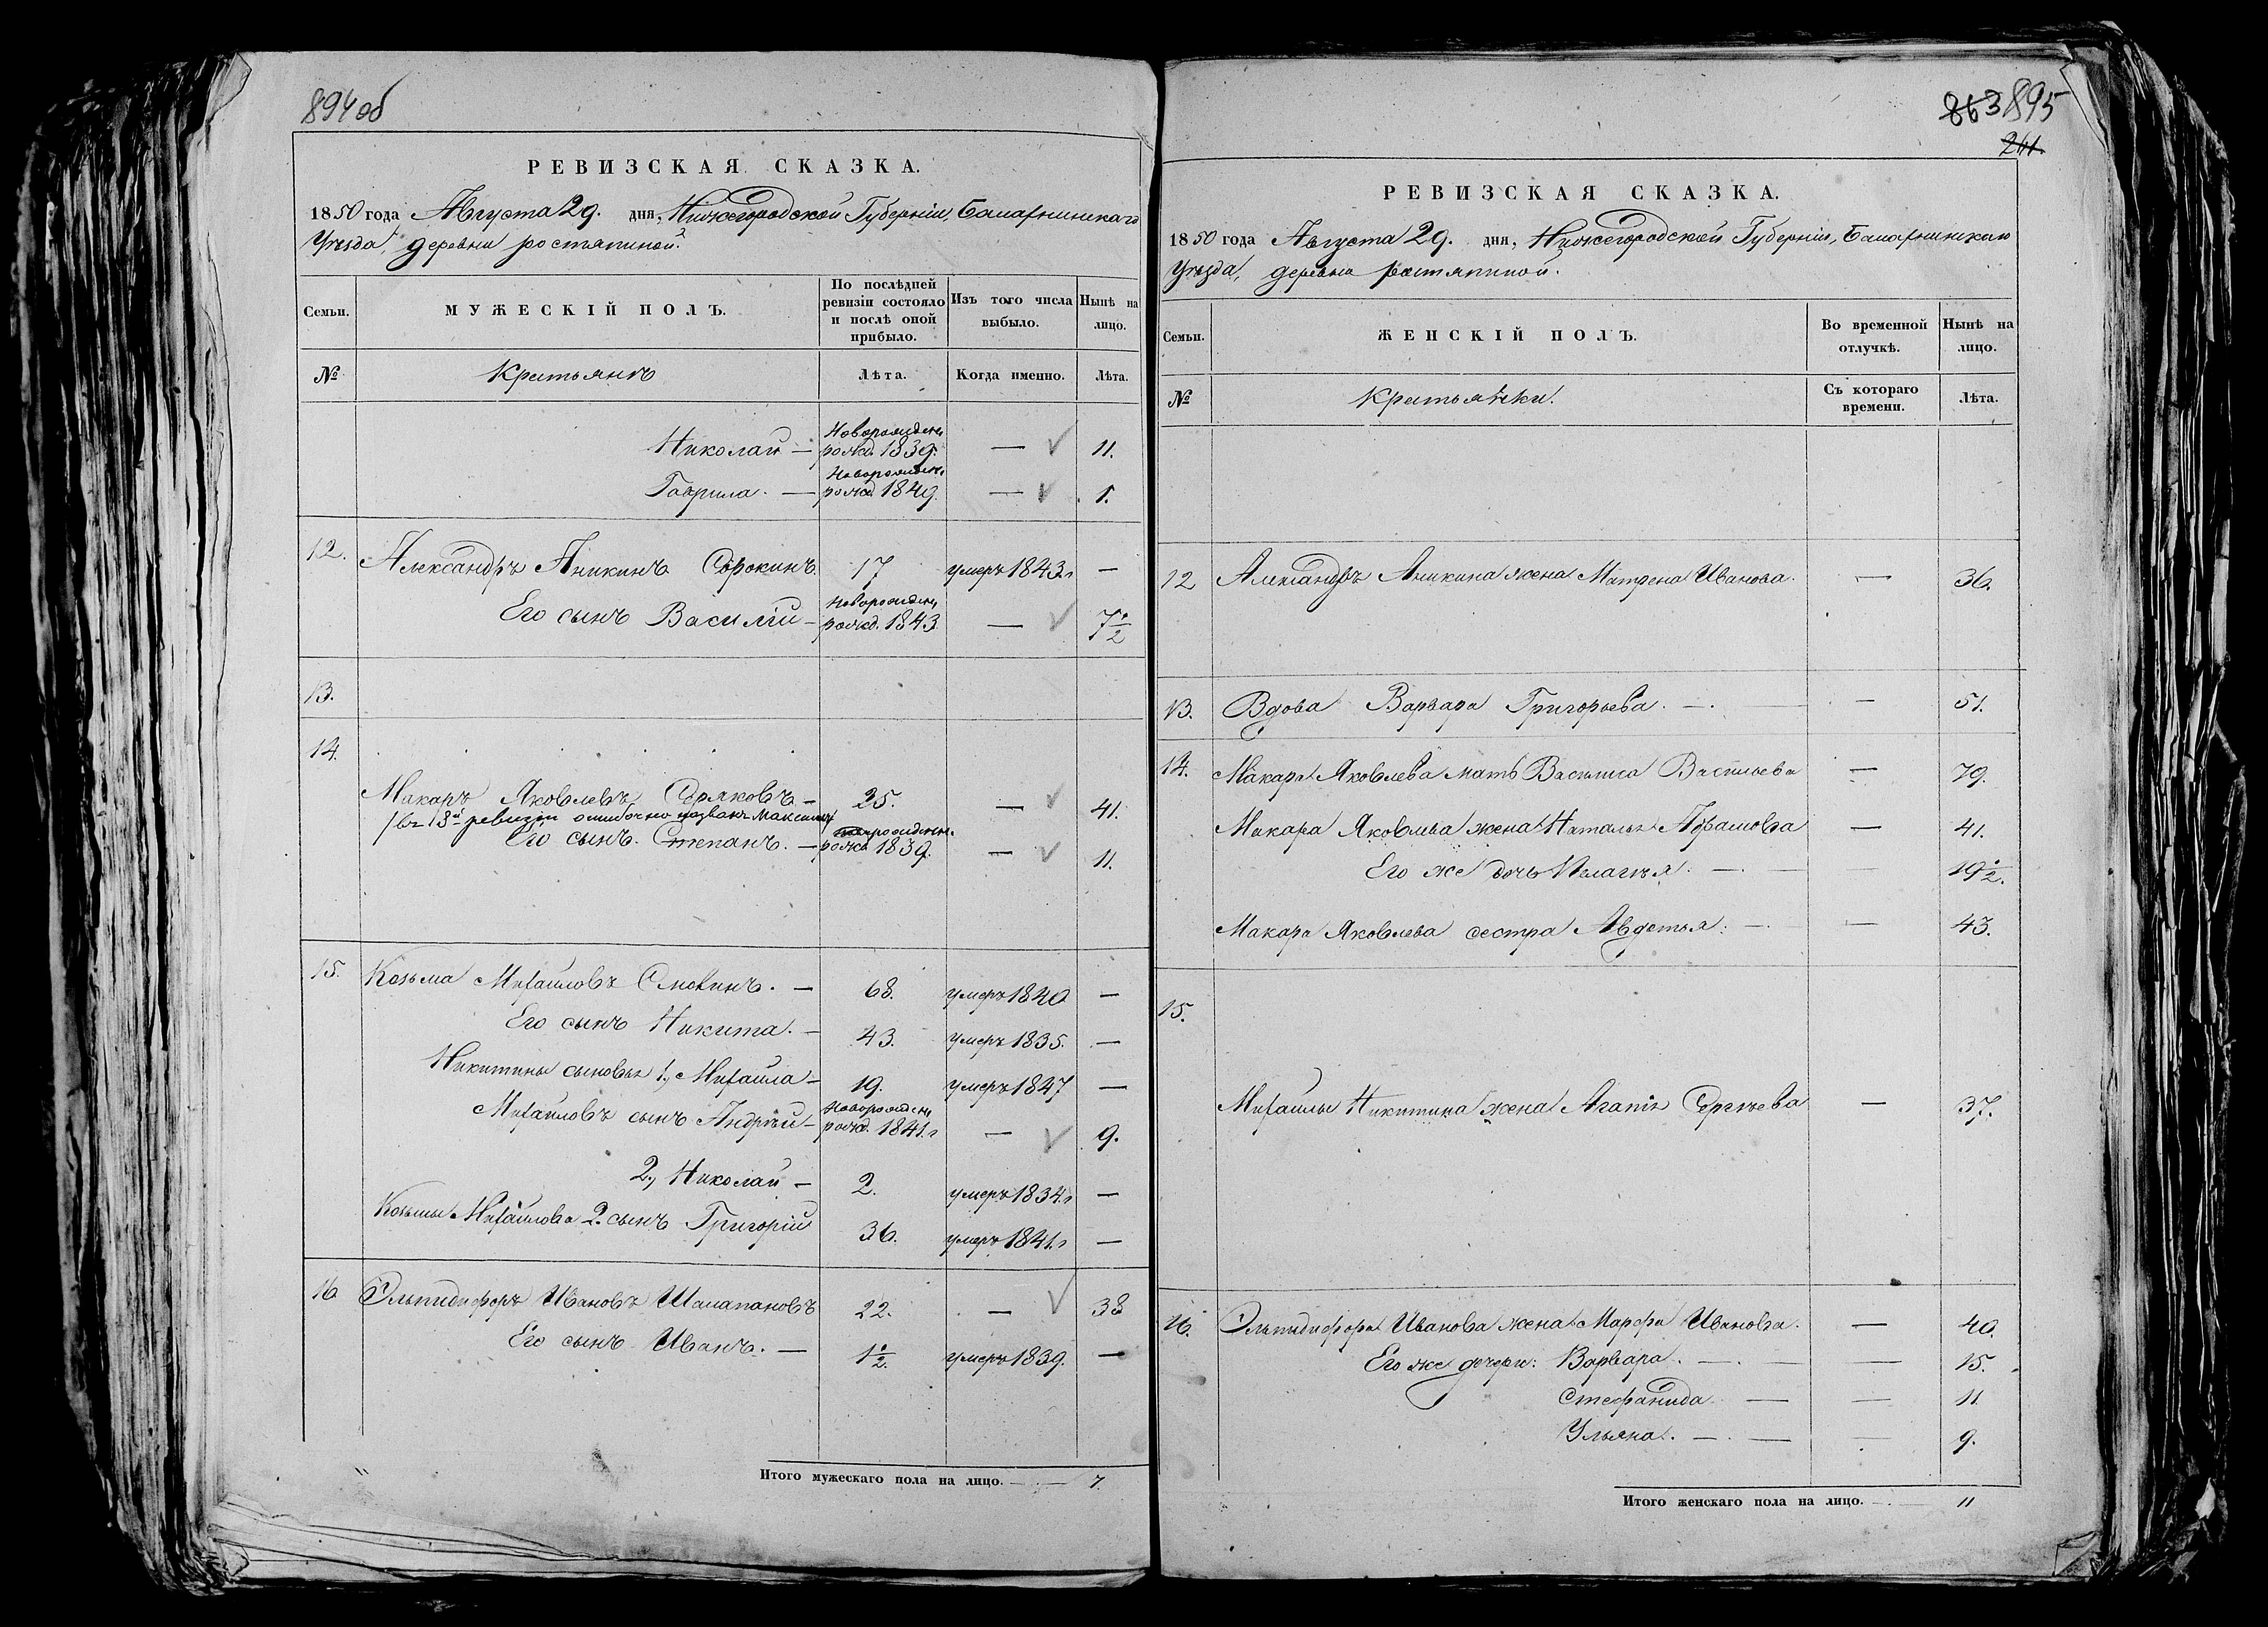 894об
РЕВИЗСКАЯ СКАЗКА.
1850 года Августа 29. дня, Нижегородской Губерніи, Балахнинскаго
Уезда, деревни ростяпиной.
Семьи.
МУЖЕСКІЙ ПОЛЪ.
По послѣдней ревизіи состояло и послѣ оной прибыло.
Изъ того числа выбыло.
Нынѣ на лицо.
№ Крестьянъ Лѣта. Когда именно. Лѣта.
Николай — Новорожден. рожд. 1839. — 11.
Гаврила. — Новорожден. рожд 1849. — 1.
12. Александръ Аникинъ Сорокинъ. 17 умеръ 1843 г —
Его сынъ Василій — Новорожден. рожд. 1843 — 7 1/2
13.
14.
Макаръ Яковлевъ Серяковъ — 25. — 41.
(въ 8й ревизіи ошибочно названъ Максимъ)
Его сынъ. Степанъ. — новорожден. рожд 1839. — 11.
15. Козьма Михайловъ Смовинъ. — 68. умеръ 1840 —
Его сынъ Никита. — 43. умеръ 1835. —
Никитины сыновья 1, Михаила — 19. умеръ 1847 —
Михайловъ сынъ Андрѣй — Новорожден. рожд. 1841 г — 9.
2, Николай — 2. умеръ 1834 г —
Козьмы Михайлова 2. сынъ Григорій 36. умеръ 1841 г —
16 Эльпидифоръ Ивановъ Шалапановъ 22. — 38
Его сынъ Иванъ. — 1 1/2. умеръ 1839. —
Итого мужескаго пола на лицо. — 7.
863 895
261.
РЕВИЗСКАЯ СКАЗКА.
1850 года Августа 29. дня, Нижегородской Губерніи, Балахнинскаго
Уезда, деревни ростяпиной.
Семьи.
ЖЕНСКІЙ ПОЛЪ.
Во временной отлучкѣ.
Нынѣ на лицо.
№ Крестьянки. Съ котораго времени. Лѣта.
12 Александръ Аникина жена Матрена Иванова. — 36.
13. Вдова Варвара Григорьева. — 51.
14. Макара Яковлева мать Василиса Васильева — 79.
Макара Яковлева жена Наталья Абрамова — 41.
Его же дочь Пелагѣя. — 19 1/2.
Макара Яковлева сестра Авдотья. — 43.
15.
Михайлы Никитина жена Агапія Сергѣева — 37.
16. Эльпидифора Иванова жена Марфа Иванова. — 40.
Его же дочери: Варвара. — 15.
Стефанида — 11
Ульяна. — 9.
Итого женскаго пола на лицо. — 11